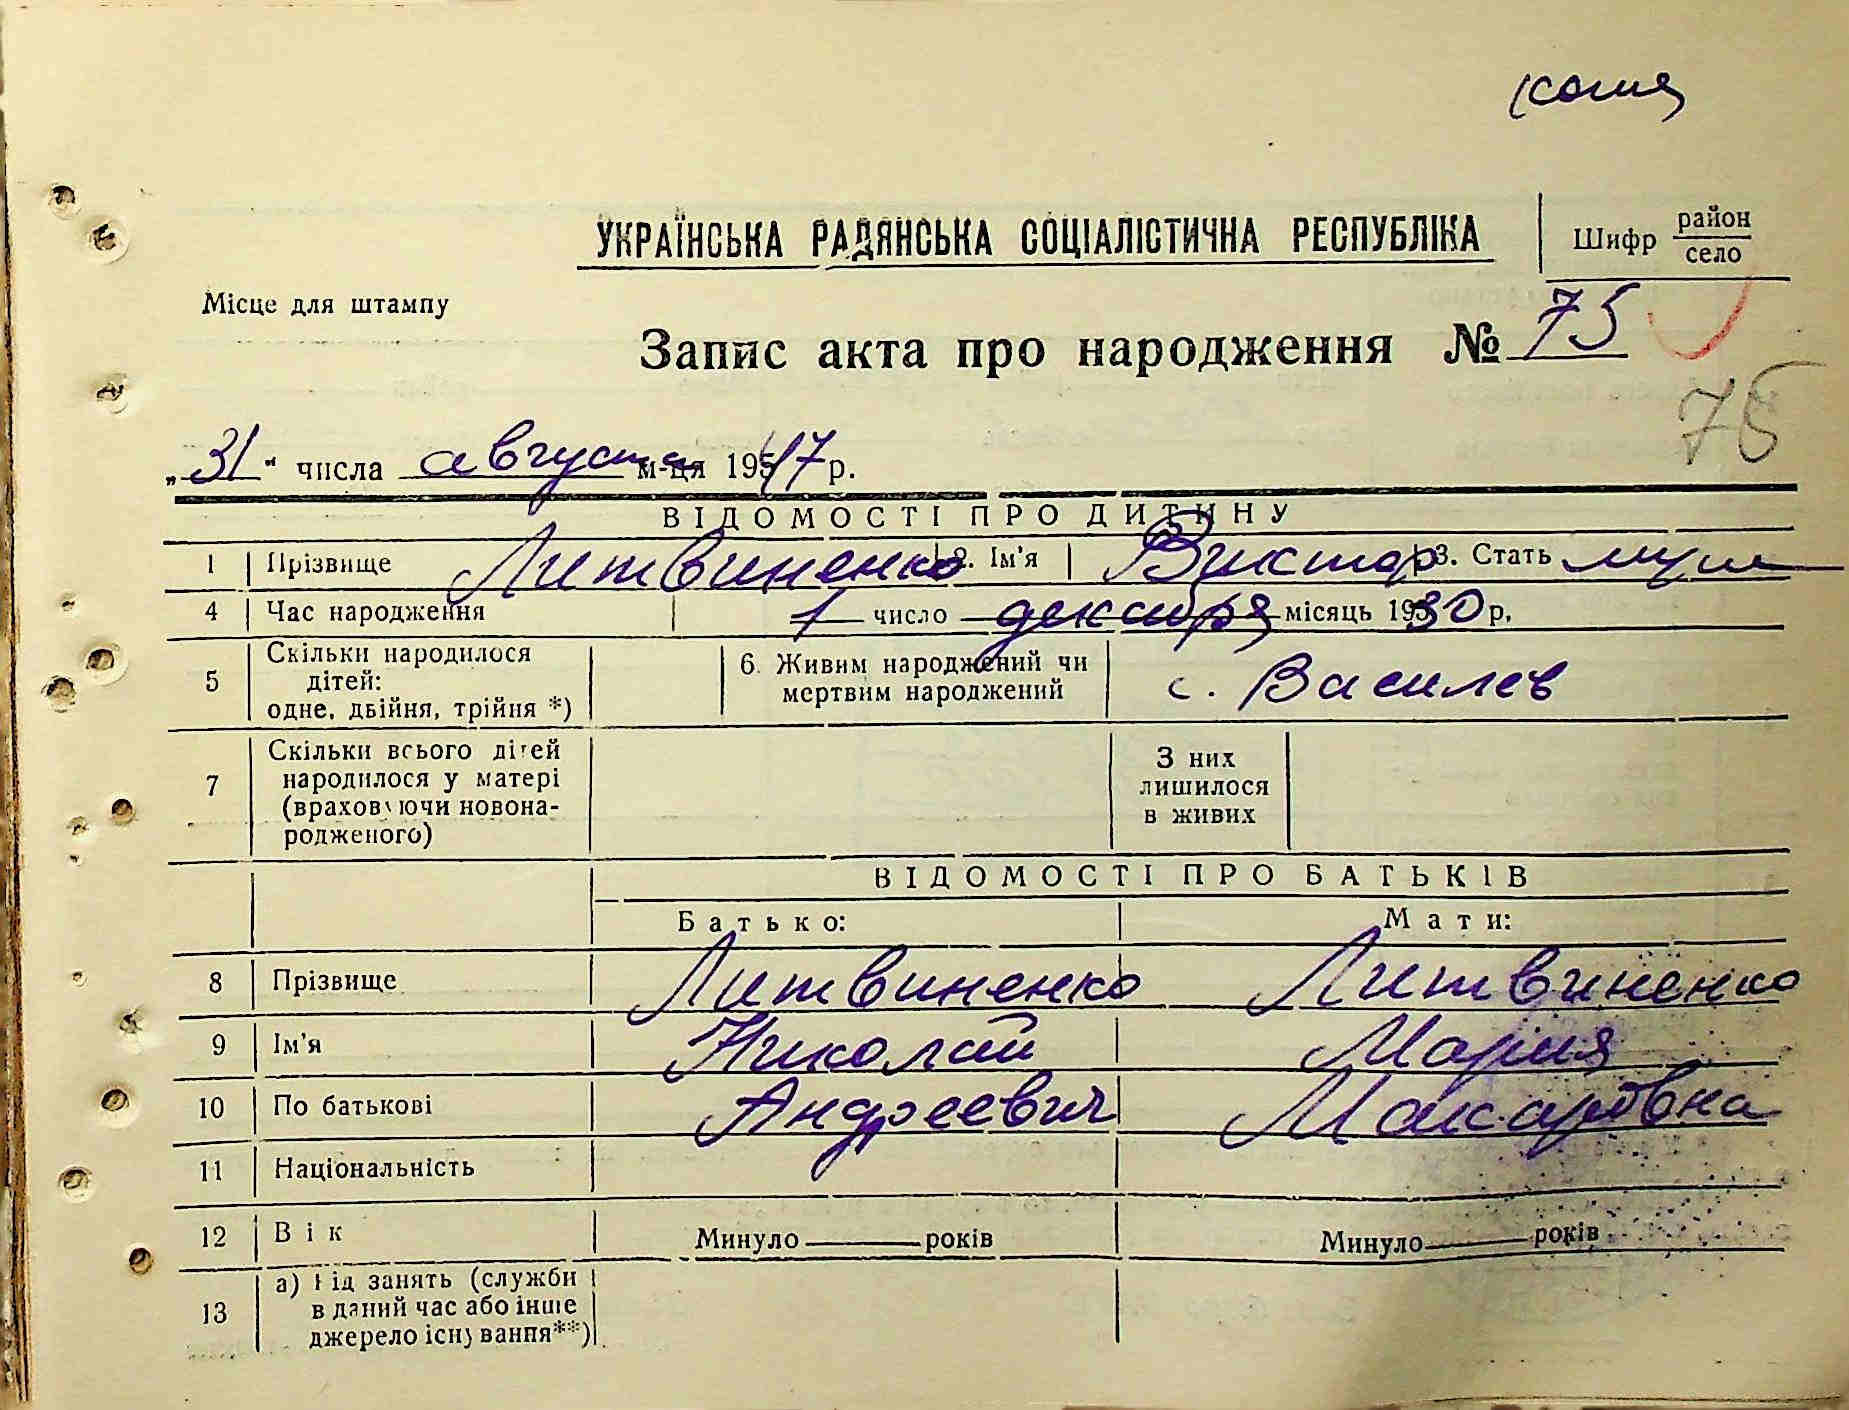 копия
УКРАЇНСЬКА РАДЯНСЬКА СОЦІАЛІСТИЧНА РЕСПУБЛІКА
Шифр район село
Місце для штампу
Запис акта про народження № 75
75
„31“ числа августа м-ця 1947 р.
ВІДОМОСТІ ПРО ДИТИНУ
1 Прізвище Литвиненко 2. Ім'я Виктор 3. Стать муж
4 Час народження 1 число декабря місяць 1930 р.
5 Скільки народилося дітей: одне, двійня, трійня *) 6. Живим народжений чи мертвим народжений с. Василев
7 Скільки всього дітей народилося у матері (враховуючи новонародженого) З них лишилося в живих
ВІДОМОСТІ ПРО БАТЬКІВ
Батько: Мати:
8 Прізвище Литвиненко Литвиненко
9 Ім'я Николай Мария
10 По батькові Андреевич Макаровна
11 Національність
12 Вік Минуло років Минуло років
13 а) Рід занять (служби в даний час або інше джерело існування**)